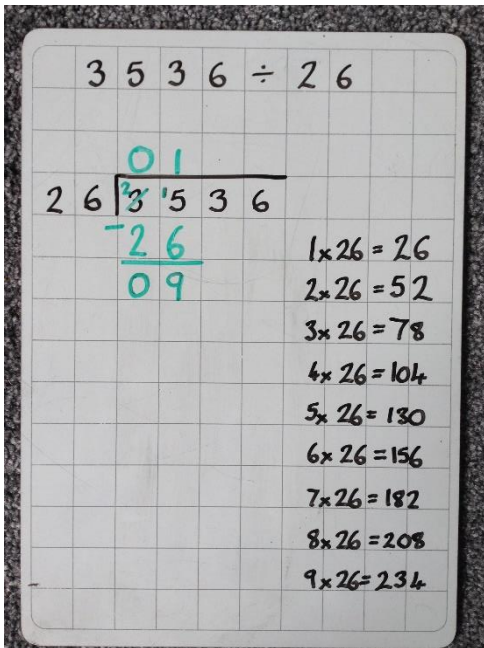 3536 ÷ 26
01
26 2 3 1 5 3 6
- 26
09
1 x 26 = 26
2 x 26 = 52
3 x 26 = 78
4 x 26 = 104
5 x 26 = 130
6 x 26 = 156
7 x 26 = 182
8 x 26 = 208
9 x 26 = 234